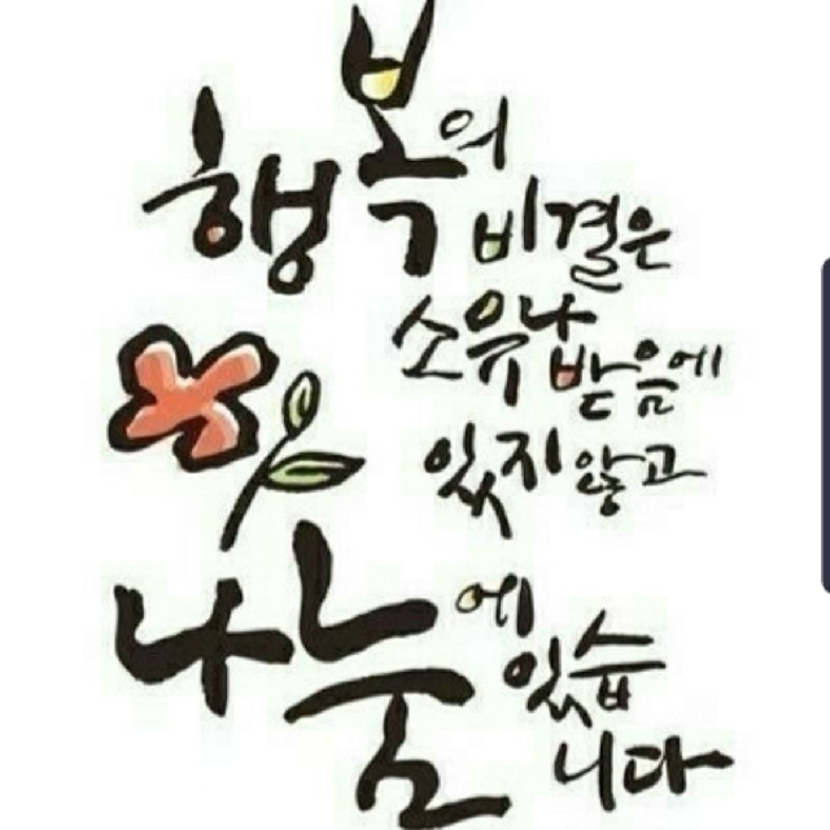 행복의
비결은
소유나
받음에
있지 않고
나눔에
있습
니다